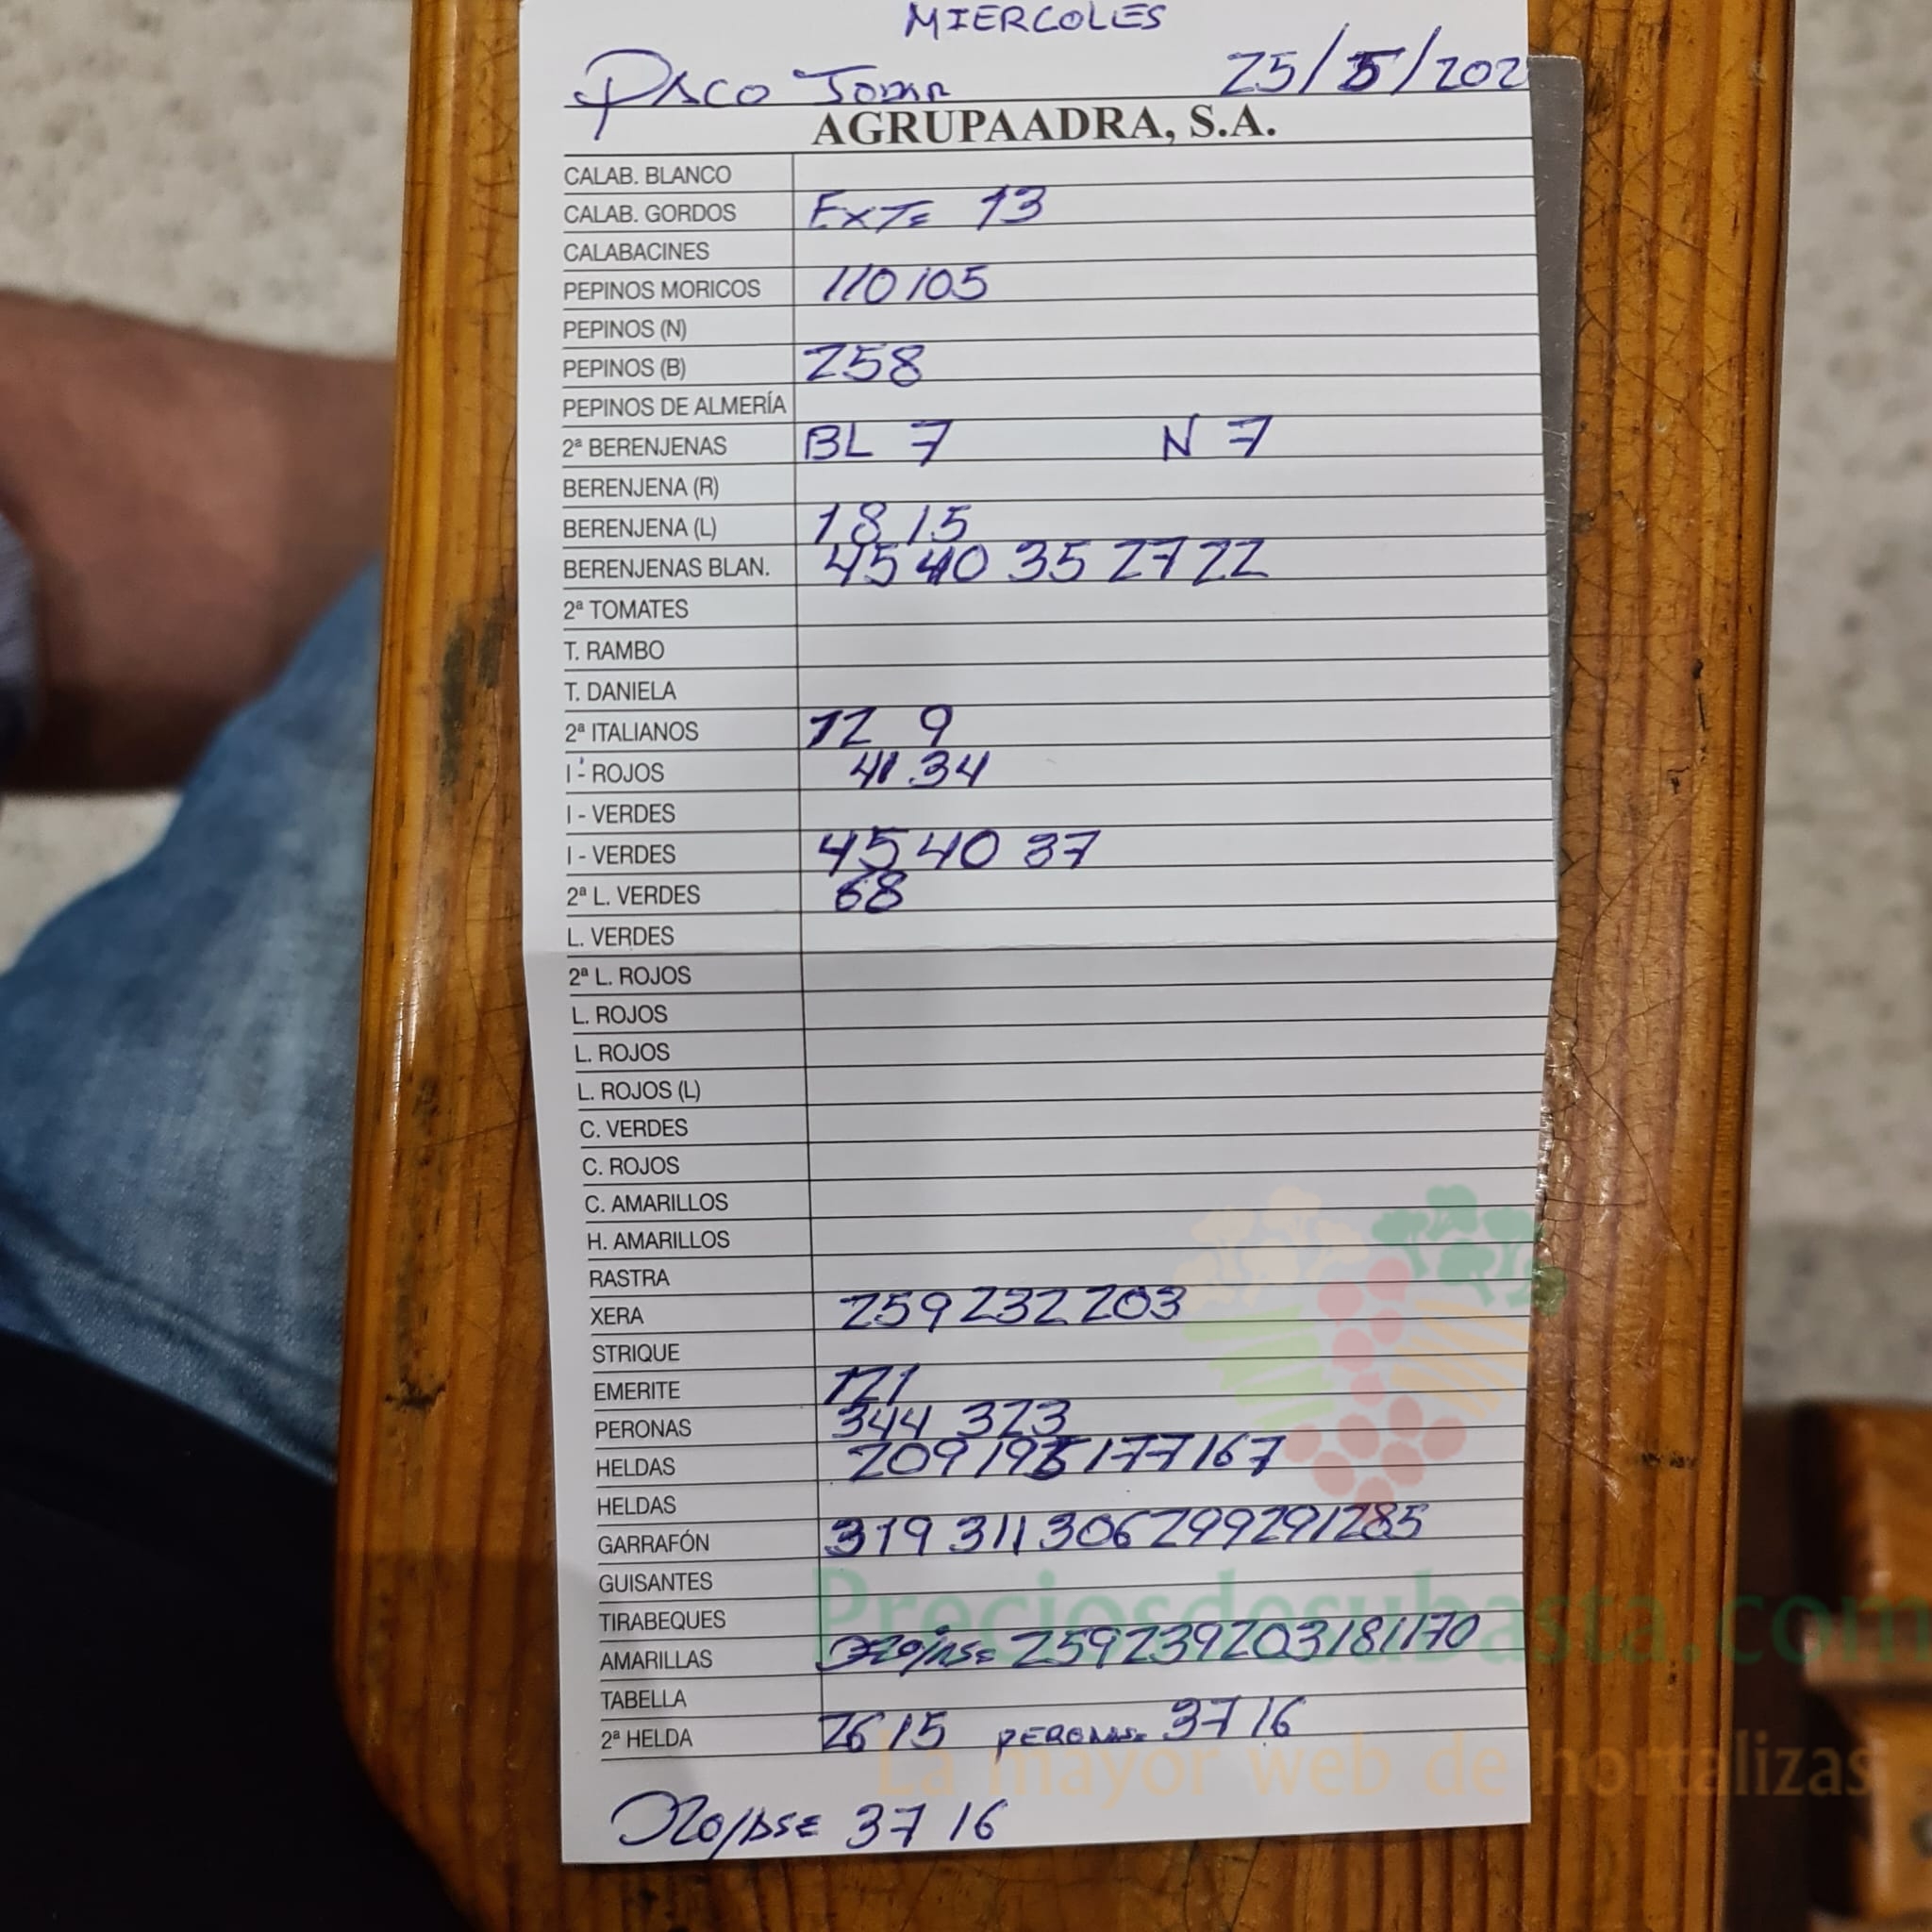 MIERCOLES
PACO JODAR 25/5/202
AGRUPAADRA, S.A.
CALAB. BLANCO
CALAB. GORDOS EXTE 13
CALABACINES
PEPINOS MORICOS 110 105
PEPINOS (N)
PEPINOS (B) 258
PEPINOS DE ALMERÍA
2ª BERENJENAS BL 7 N 7
BERENJENA (R)
BERENJENA (L) 18 15
BERENJENAS BLAN. 45 40 35 27 22
2ª TOMATES
T. RAMBO
T. DANIELA
2ª ITALIANOS 12 9
I - ROJOS 41 34
I - VERDES
I - VERDES 45 40 37
2ª L. VERDES 68
L. VERDES
2ª L. ROJOS
L. ROJOS
L. ROJOS
L. ROJOS (L)
C. VERDES
C. ROJOS
C. AMARILLOS
H. AMARILLOS
RASTRA
XERA 259 232 203
STRIQUE
EMERITE 121
PERONAS 344 323
HELDAS 209 195 177 167
HELDAS
GARRAFÓN 319 311 306 299 291 285
GUISANTES
TIRABEQUES
AMARILLAS 259 239 203 181 170
TABELLA
2ª HELDA 26 15 PERONAS 37 16
37 16
Preciosdesubasta.com
La mayor web de hortalizas